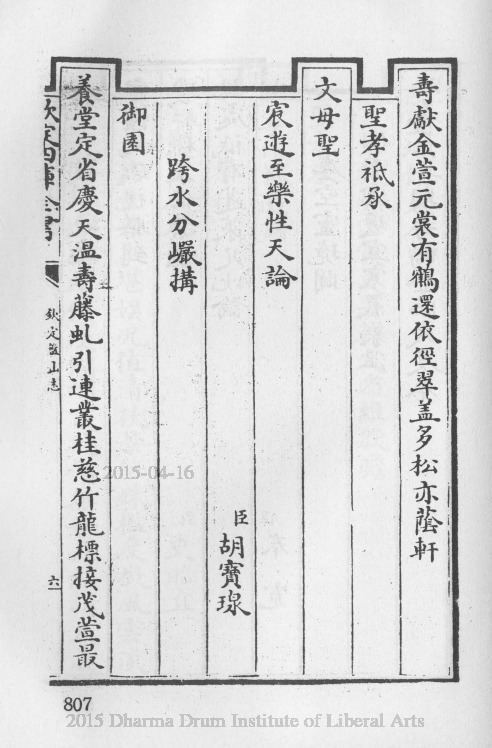 壽獻金萱元裳有鶴還依徑翠盖多松亦蔭軒
聖孝祇承
文母聖
宸遊至樂性天論
臣胡寶瑔
跨水分巗搆
御園
養堂定省慶天温壽藤虬引連叢桂慈竹龍標接茂萱最
欽定四庫全書
欽定盤山志
六
2015-04-16
807
2015 Dharma Drum Institute of Liberal Arts